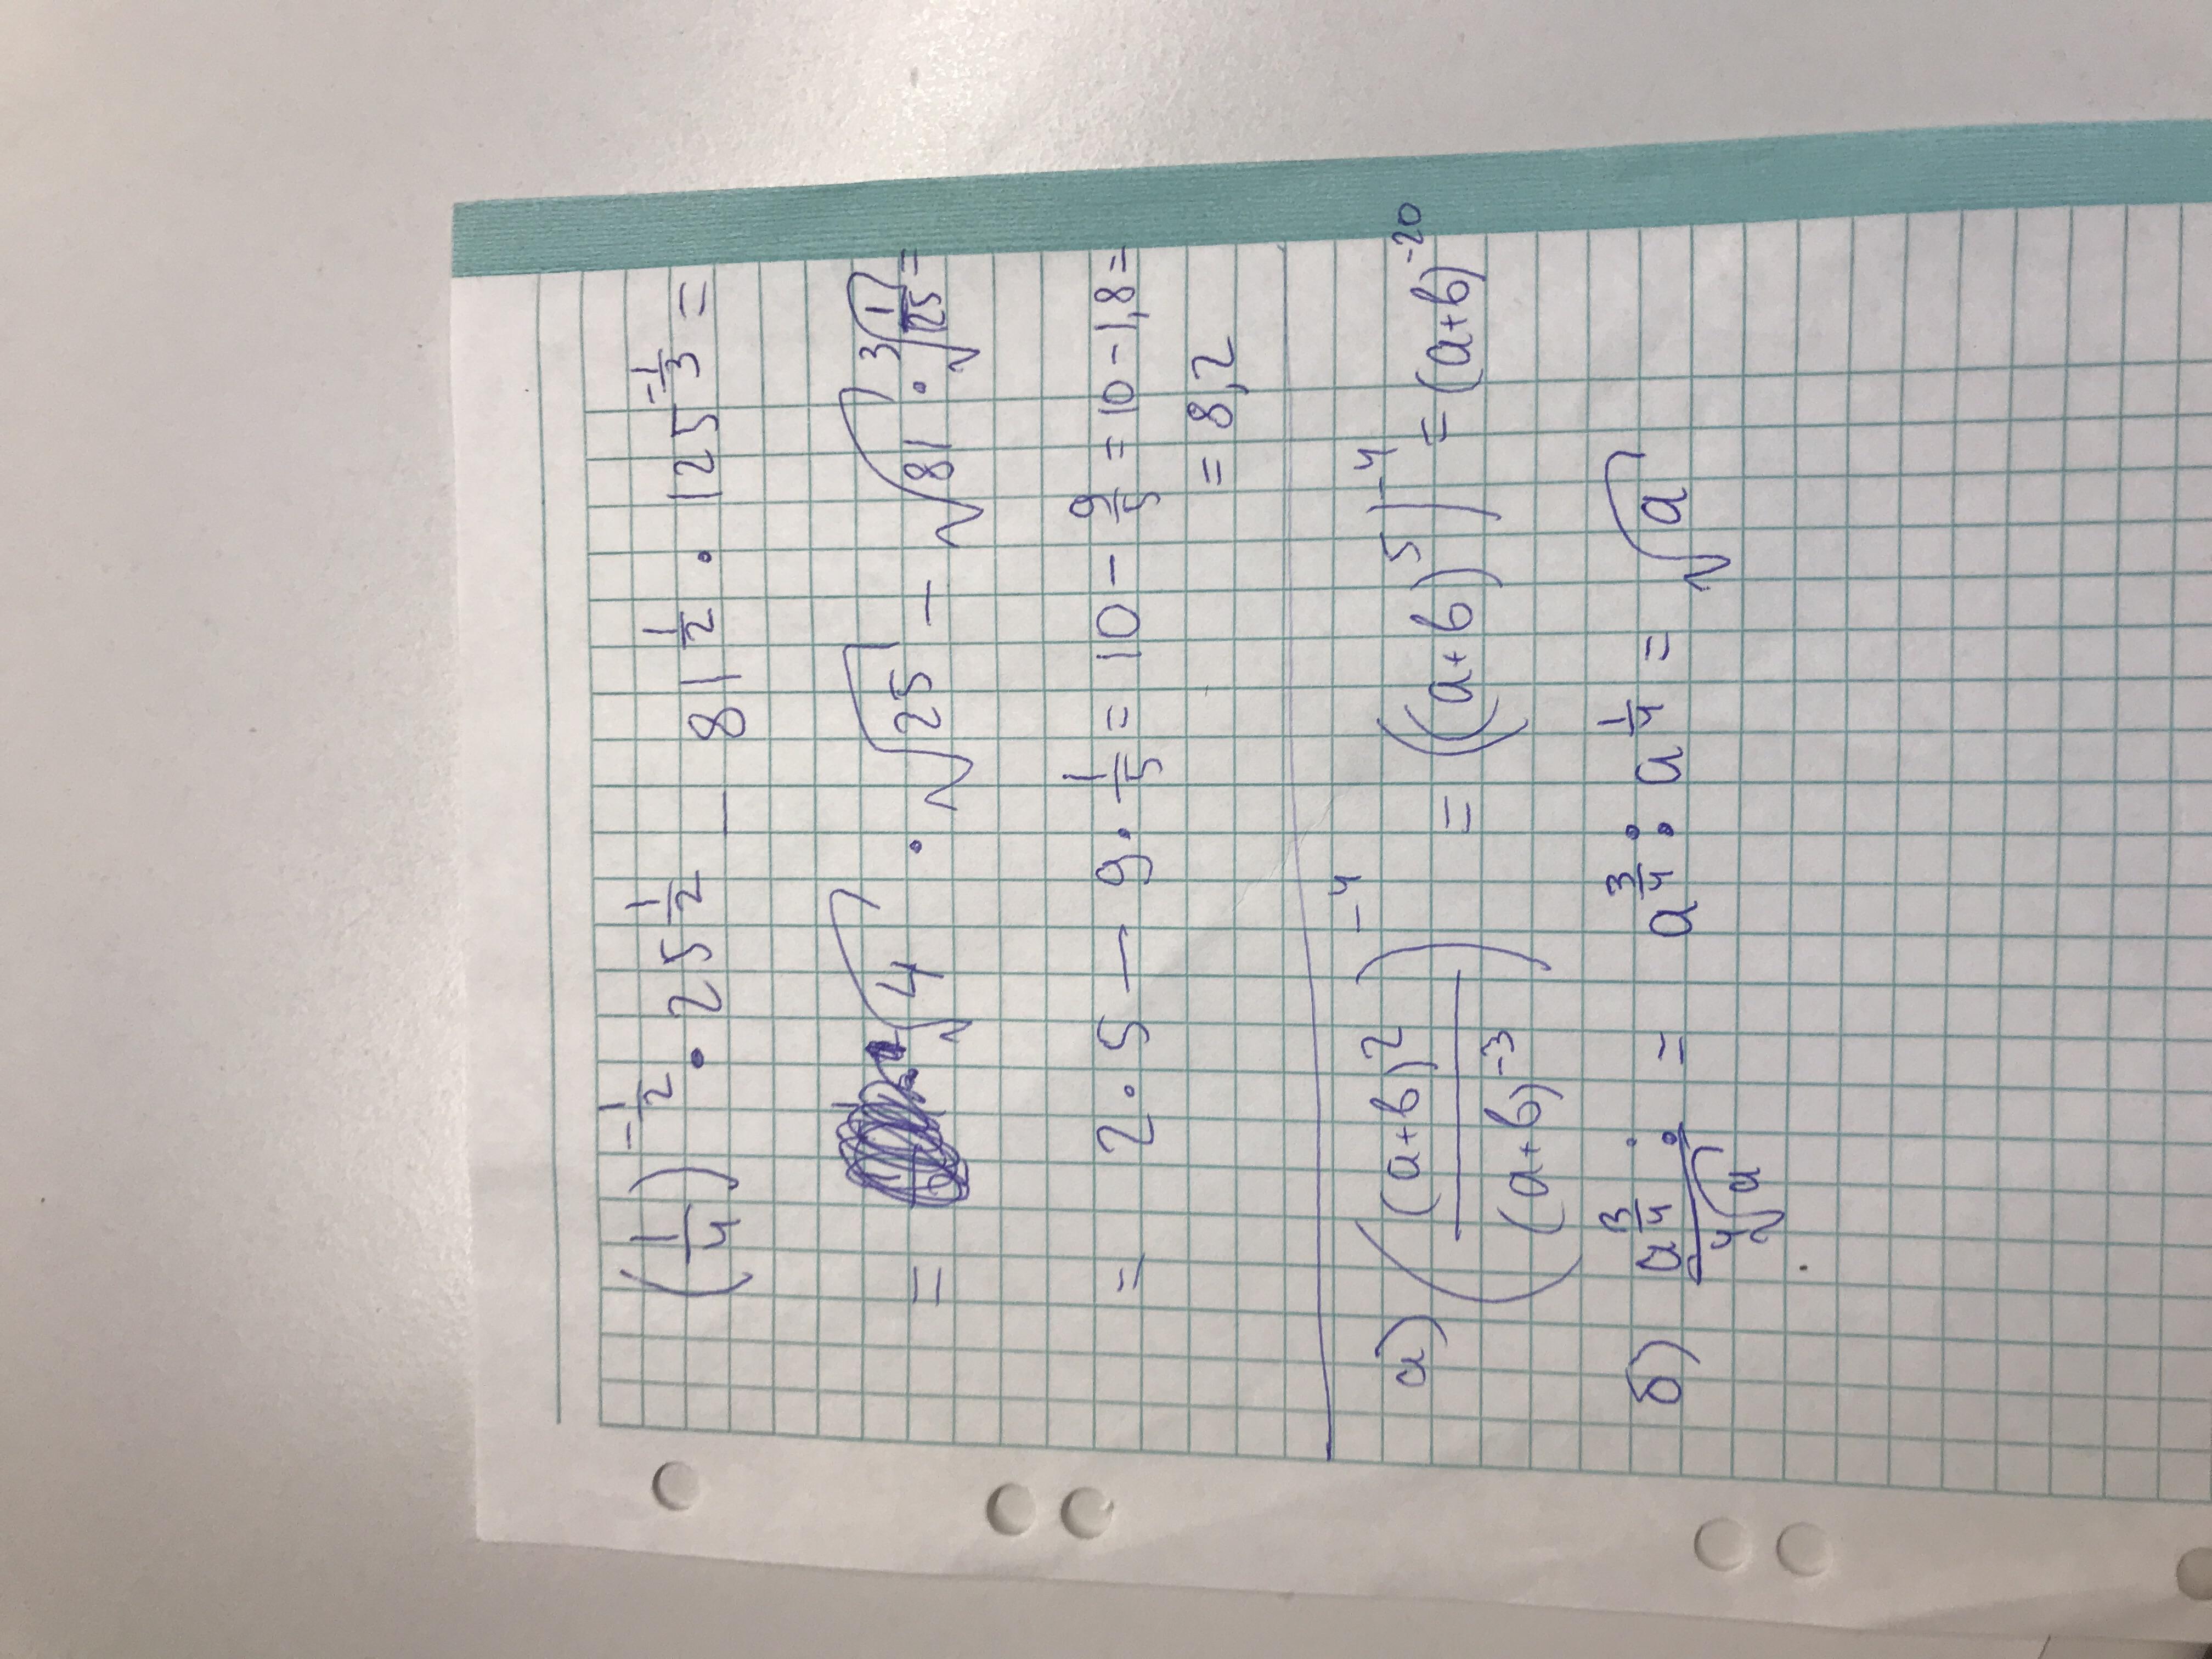 (1/4)^(-1/2) · 25^(1/2) – 81^(1/2) · 125^(-1/3) =
= √4 · √25 – √81 · ∛(1/125) =
= 2 · 5 – 9 · 1/5 = 10 – 9/5 = 10 – 1,8 =
= 8,2
а) ((a+b)^2/(a+b)^(-3))^(-4) = ((a+b)^5)^(-4) = (a+b)^(-20)
б) a^(3/4) : ∜a = a^(3/4) : a^(1/4) = √a